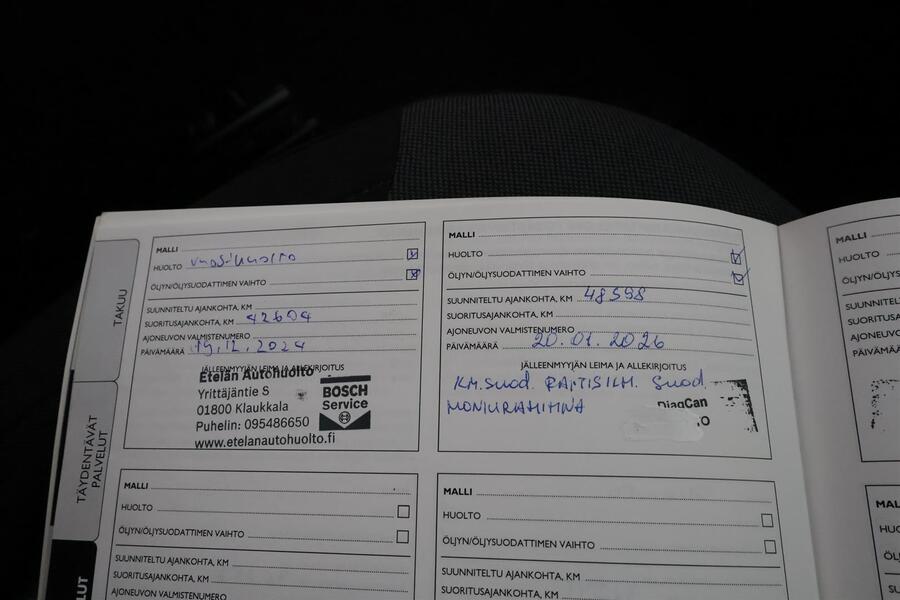 TAKUU
TÄYDENTÄVÄT
PALVELUT
MALLI
HUOLTO vuosihuolto
ÖLJYN/ÖLJYSUODATTIMEN VAIHTO
SUUNNITELTU AJANKOHTA, KM
SUORITUSAJANKOHTA, KM 42604
AJONEUVON VALMISTENUMERO
PÄIVÄMÄÄRÄ 19.12.2024
JÄLLEENMYYJÄN LEIMA JA ALLEKIRJOITUS
Etelän Autohuolto
Yrittäjäntie 5
01800 Klaukkala
Puhelin: 095486650
www.etelanautohuolto.fi
BOSCH
Service
MALLI
HUOLTO
ÖLJYN/ÖLJYSUODATTIMEN VAIHTO
SUUNNITELTU AJANKOHTA, KM 48598
SUORITUSAJANKOHTA, KM
AJONEUVON VALMISTENUMERO
PÄIVÄMÄÄRÄ 20.01.2026
JÄLLEENMYYJÄN LEIMA JA ALLEKIRJOITUS
KM.suod. RAITISILM. suod.
MONIURAHIHNA
DiagCan
MALLI
HUOLTO
ÖLJYN/ÖLJYSUODATTIMEN VAIHTO
SUUNNITELTU AJANKOHTA, KM
SUORITUSAJANKOHTA, KM
AJONEUVON VALMISTENUMERO
MALLI
HUOLTO
ÖLJYN/ÖLJYSUODATTIMEN VAIHTO
SUUNNITELTU AJANKOHTA, KM
SUORITUSAJANKOHTA, KM
AJONEUVON VALMISTENUMERO
MALLI
HUOLTO